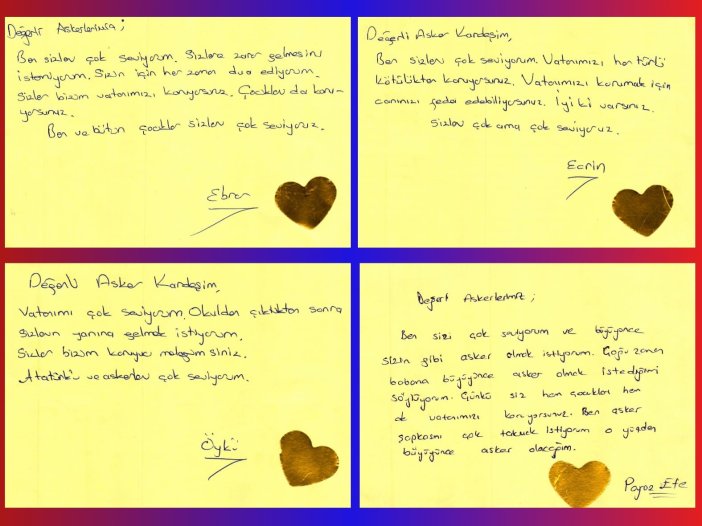 Değerli Askerlerimiz;
Ben sizleri çok seviyorum. Sizlere zarar gelmesini
istemiyorum. Sizin için her zaman dua ediyorum.
Sizler bizim vatanımızı koruyorsunuz. Çocukları da koru-
yorsunuz.
Ben ve bütün çocuklar sizleri çok seviyoruz.
Ebrar
Değerli Asker Kardeşim,
Ben sizleri çok seviyorum. Vatanımızı her türlü
kötülükten koruyorsunuz. Vatanımızı korumak için
canınızı feda edebiliyorsunuz. İyi ki varsınız.
Sizleri çok ama çok seviyoruz.
Ecrin
Değerli Asker Kardeşim,
Vatanımı çok seviyorum. Okuldan çıktıktan sonra
sizlerin yanına gelmek istiyorum.
Sizler bizim koruyucu meleğimsiniz.
Atatürk'ü ve askerleri çok seviyorum.
Öykü
Değerli Askerlerimiz;
Ben sizi çok seviyorum ve büyüyünce
sizin gibi asker olmak istiyorum. Çoğu zaman
babama büyüyünce asker olmak istediğimi
söylüyorum. Çünkü siz hem çocukları hem
de vatanımızı koruyorsunuz. Ben asker
şapkasını çok takmak istiyorum o yüzden
büyüyünce asker olacağım.
Poyraz Efe